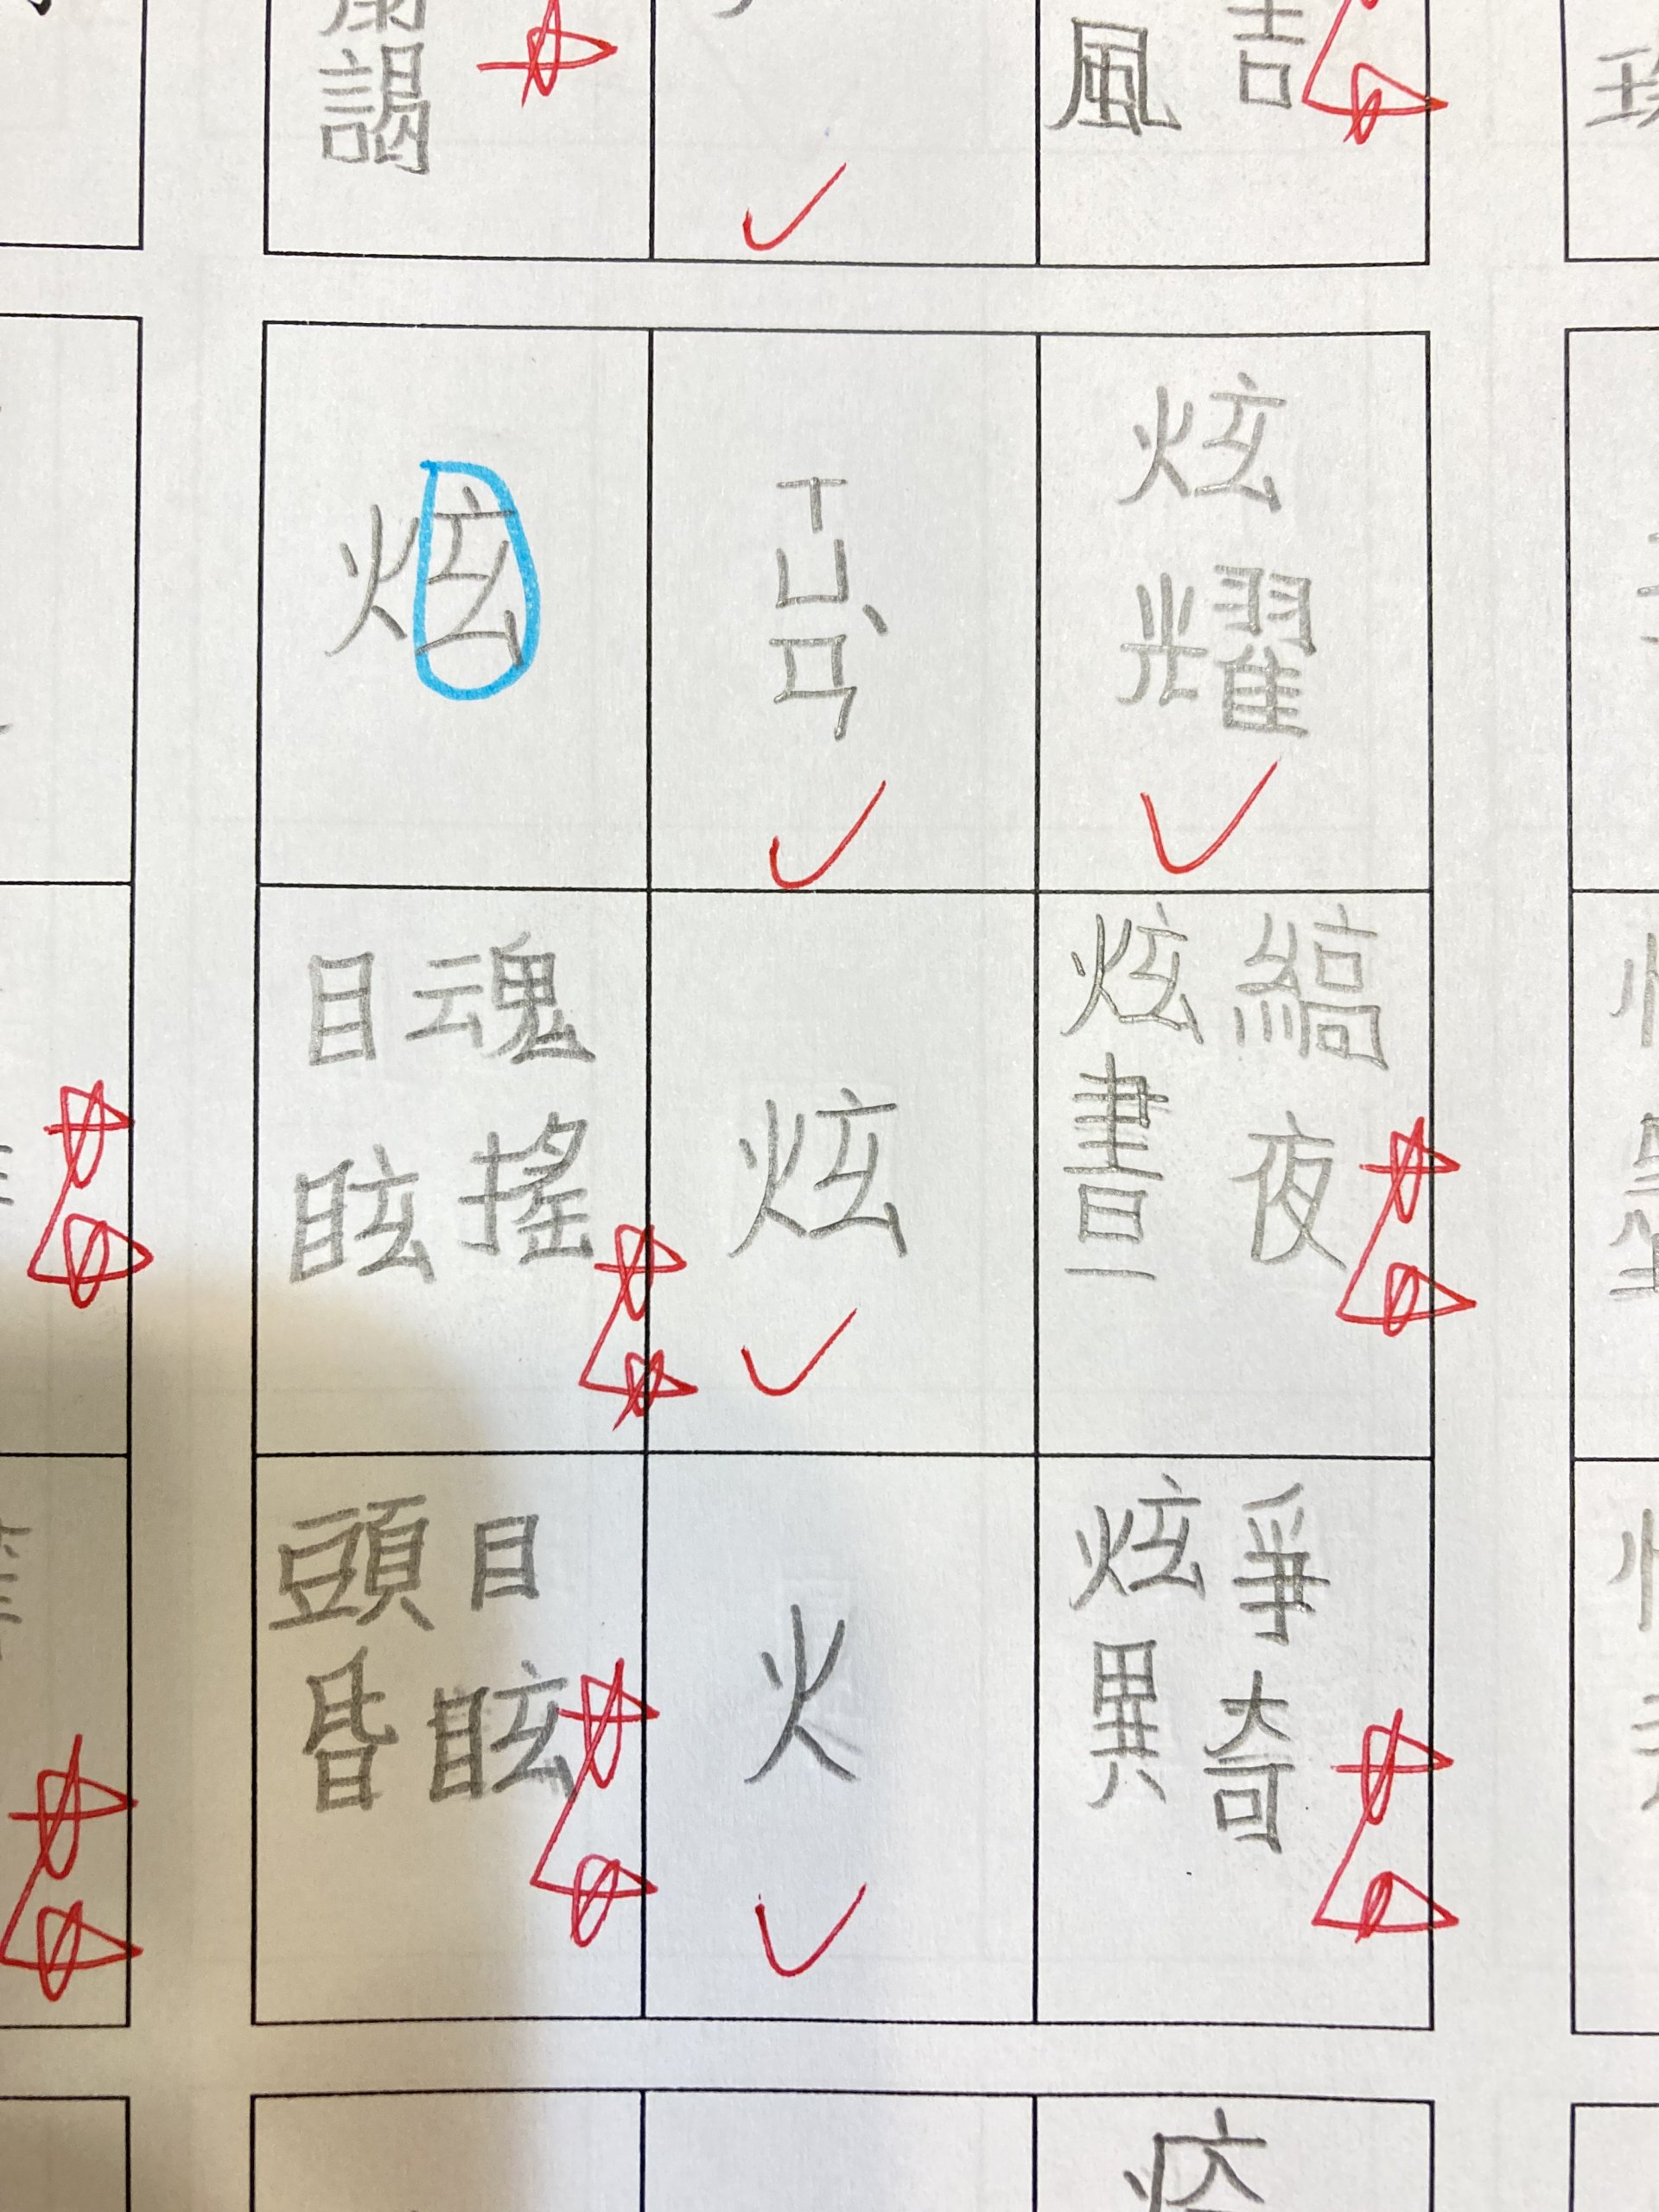 謁
風
吉
炫
ㄒㄩㄢˋ
炫耀
目眩
魂搖
炫
炫晝
縞夜
頭昏
目眩
火
炫異
爭奇